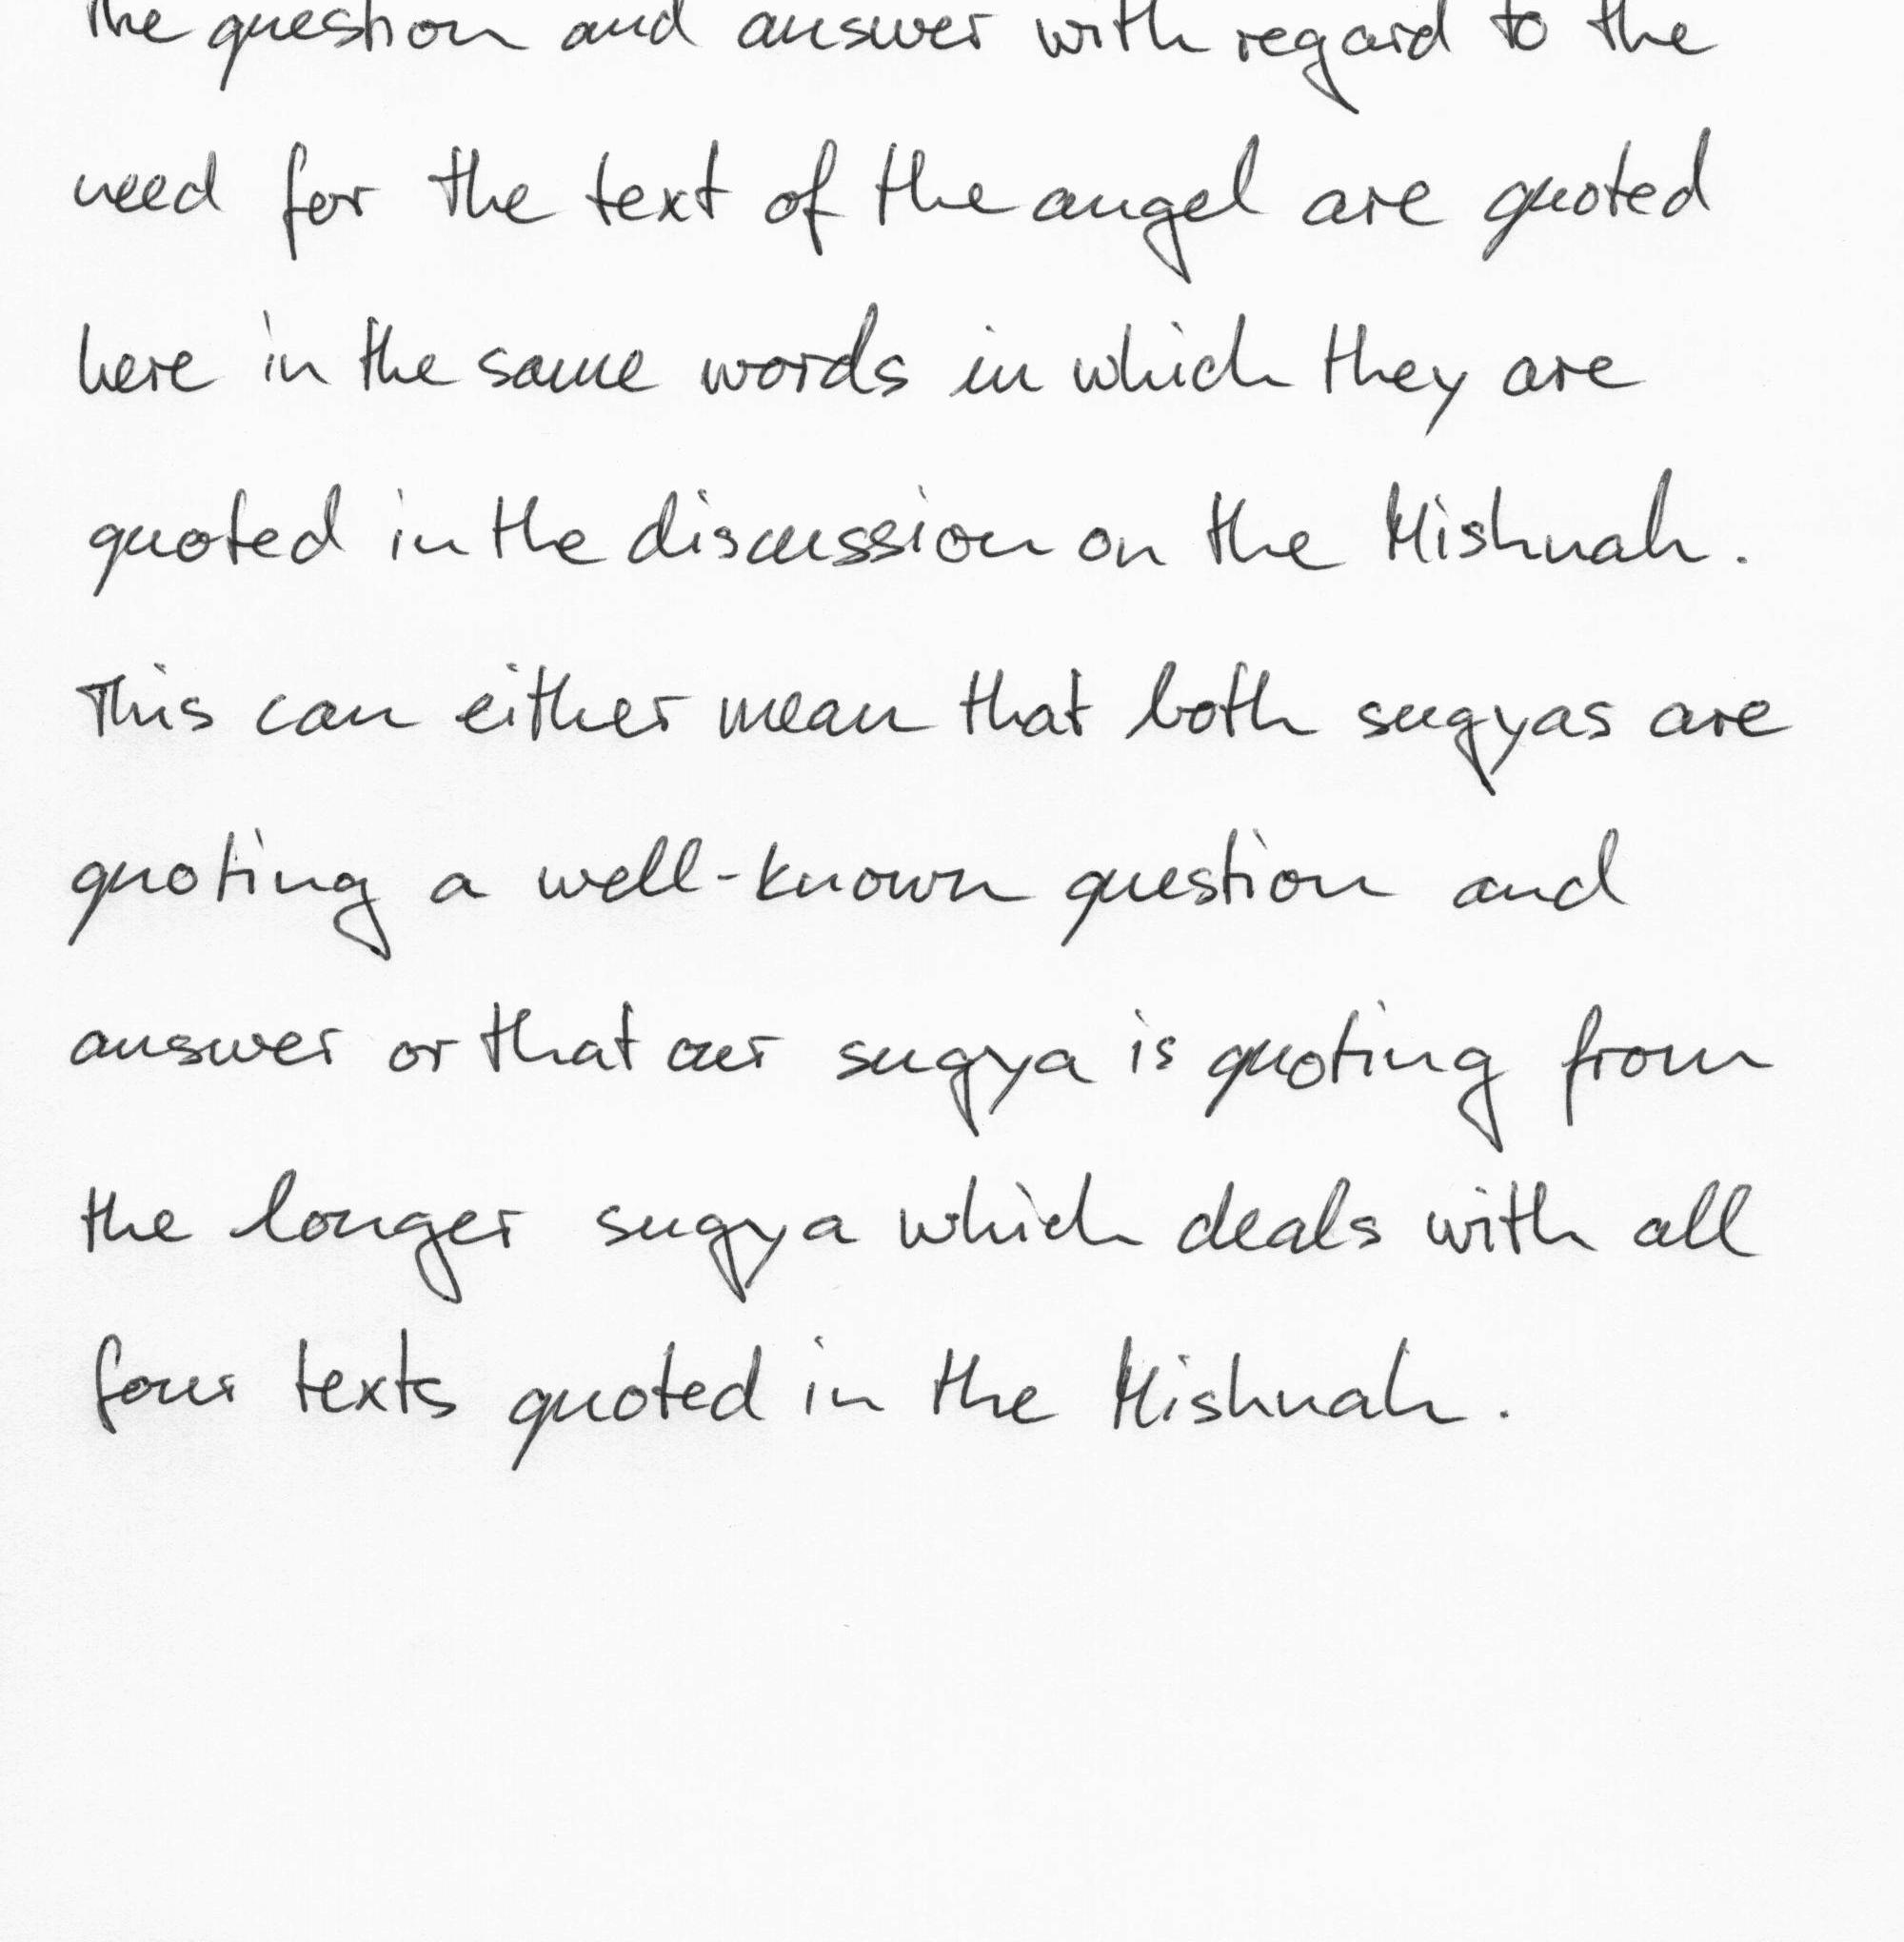 The question and answer with regard to the
need for the text of the angel are quoted
here in the same words in which they are
quoted in the discussion on the Mishnah.
This can either mean that both sugyas are
quoting a well-known question and
answer or that our sugya is quoting from
the longer sugya which deals with all
four texts quoted in the Mishnah.